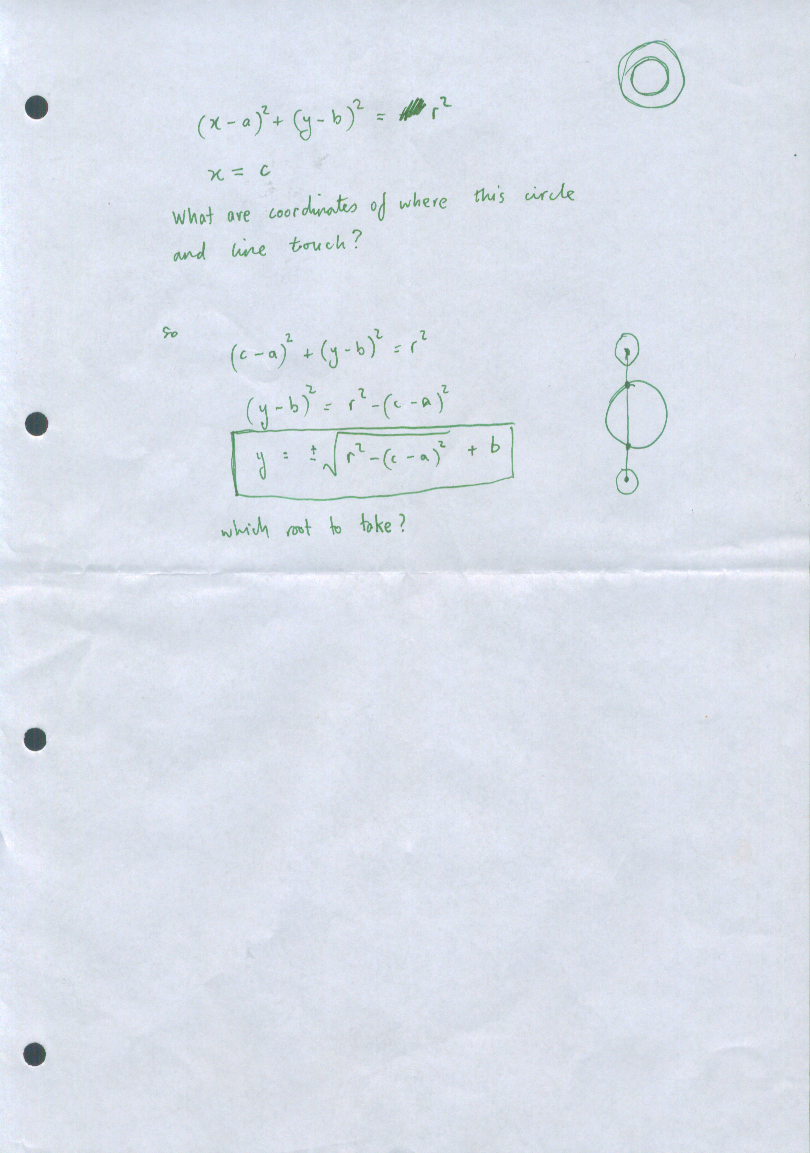 (x-a)²+(y-b)² = r²
x = c
What are coordinates of where this circle
and line touch?
so
(c-a)² + (y-b)² = r²
(y-b)² = r²-(c-a)²
y = ±√(r²-(c-a)²) + b
which root to take?